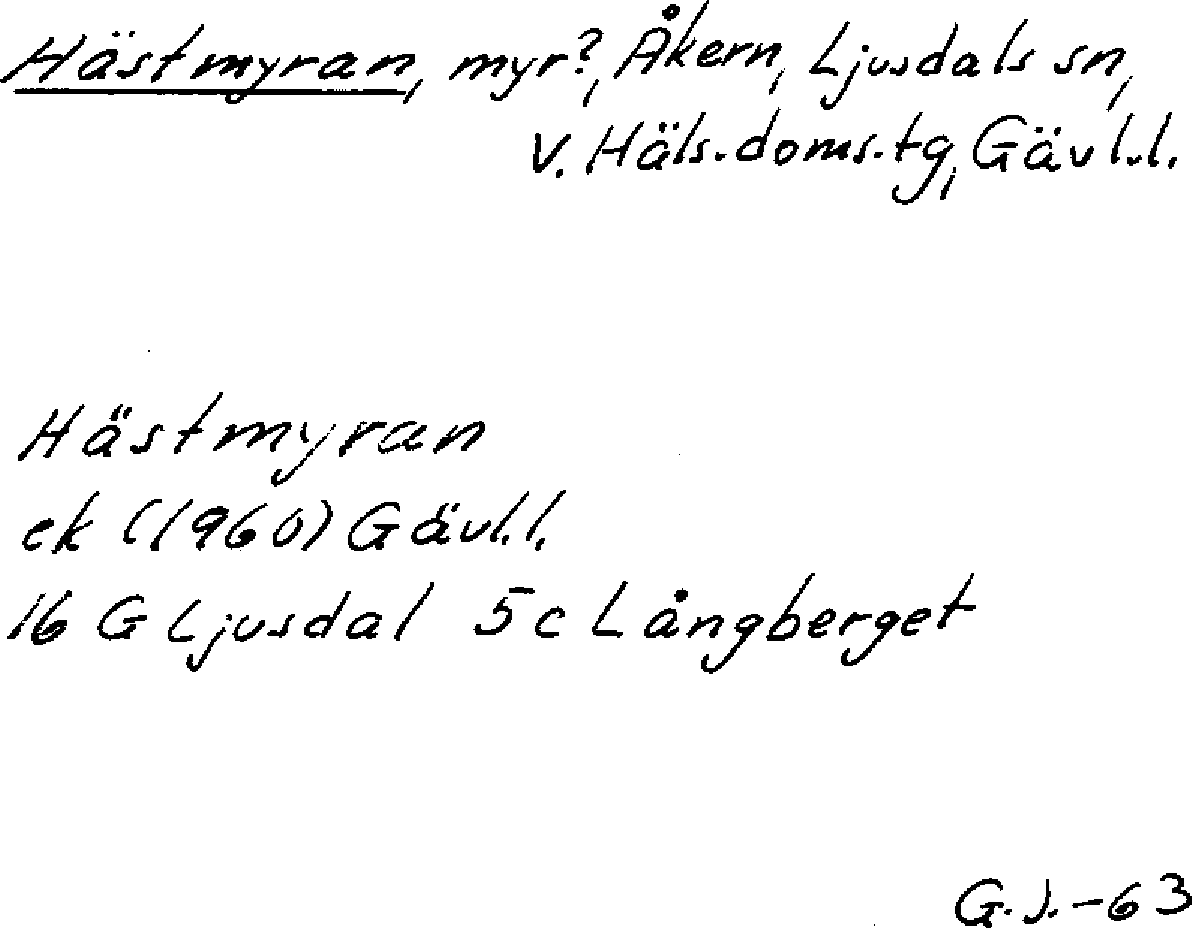 Hästmyran, myr?, Åkern, Ljusdals sn,
V. Häls. doms. tg, Gävl.l.
Hästmyran
ek (1960) Gävl.l.
16 G Ljusdal 5c Långberget
G.J.-63